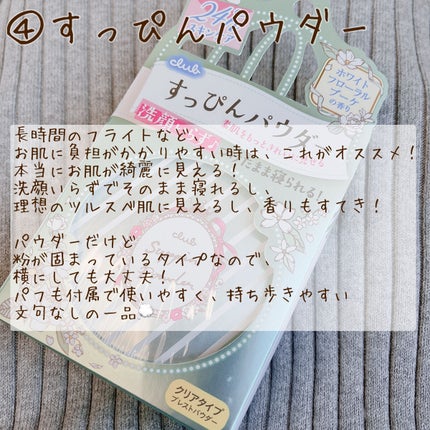 ④すっぴんパウダー
24h
スキンケア
club
ホワイト
フローラル
ブーケ
の香り
すっぴんパウダー
長時間のフライトなど、
お肌に負担がかかりやすい時は、これがオススメ！
本当にお肌が綺麗に見える！
洗顔いらずでそのまま寝れるし、
理想のツルスベ肌に見えるし、香りもすてき！
パウダーだけど
粉が固まっているタイプなので、
横にしても大丈夫！
パフも付属で使いやすく、持ち歩きやすい
文句なしの一品
club
クリアタイプ
プレストパウダー